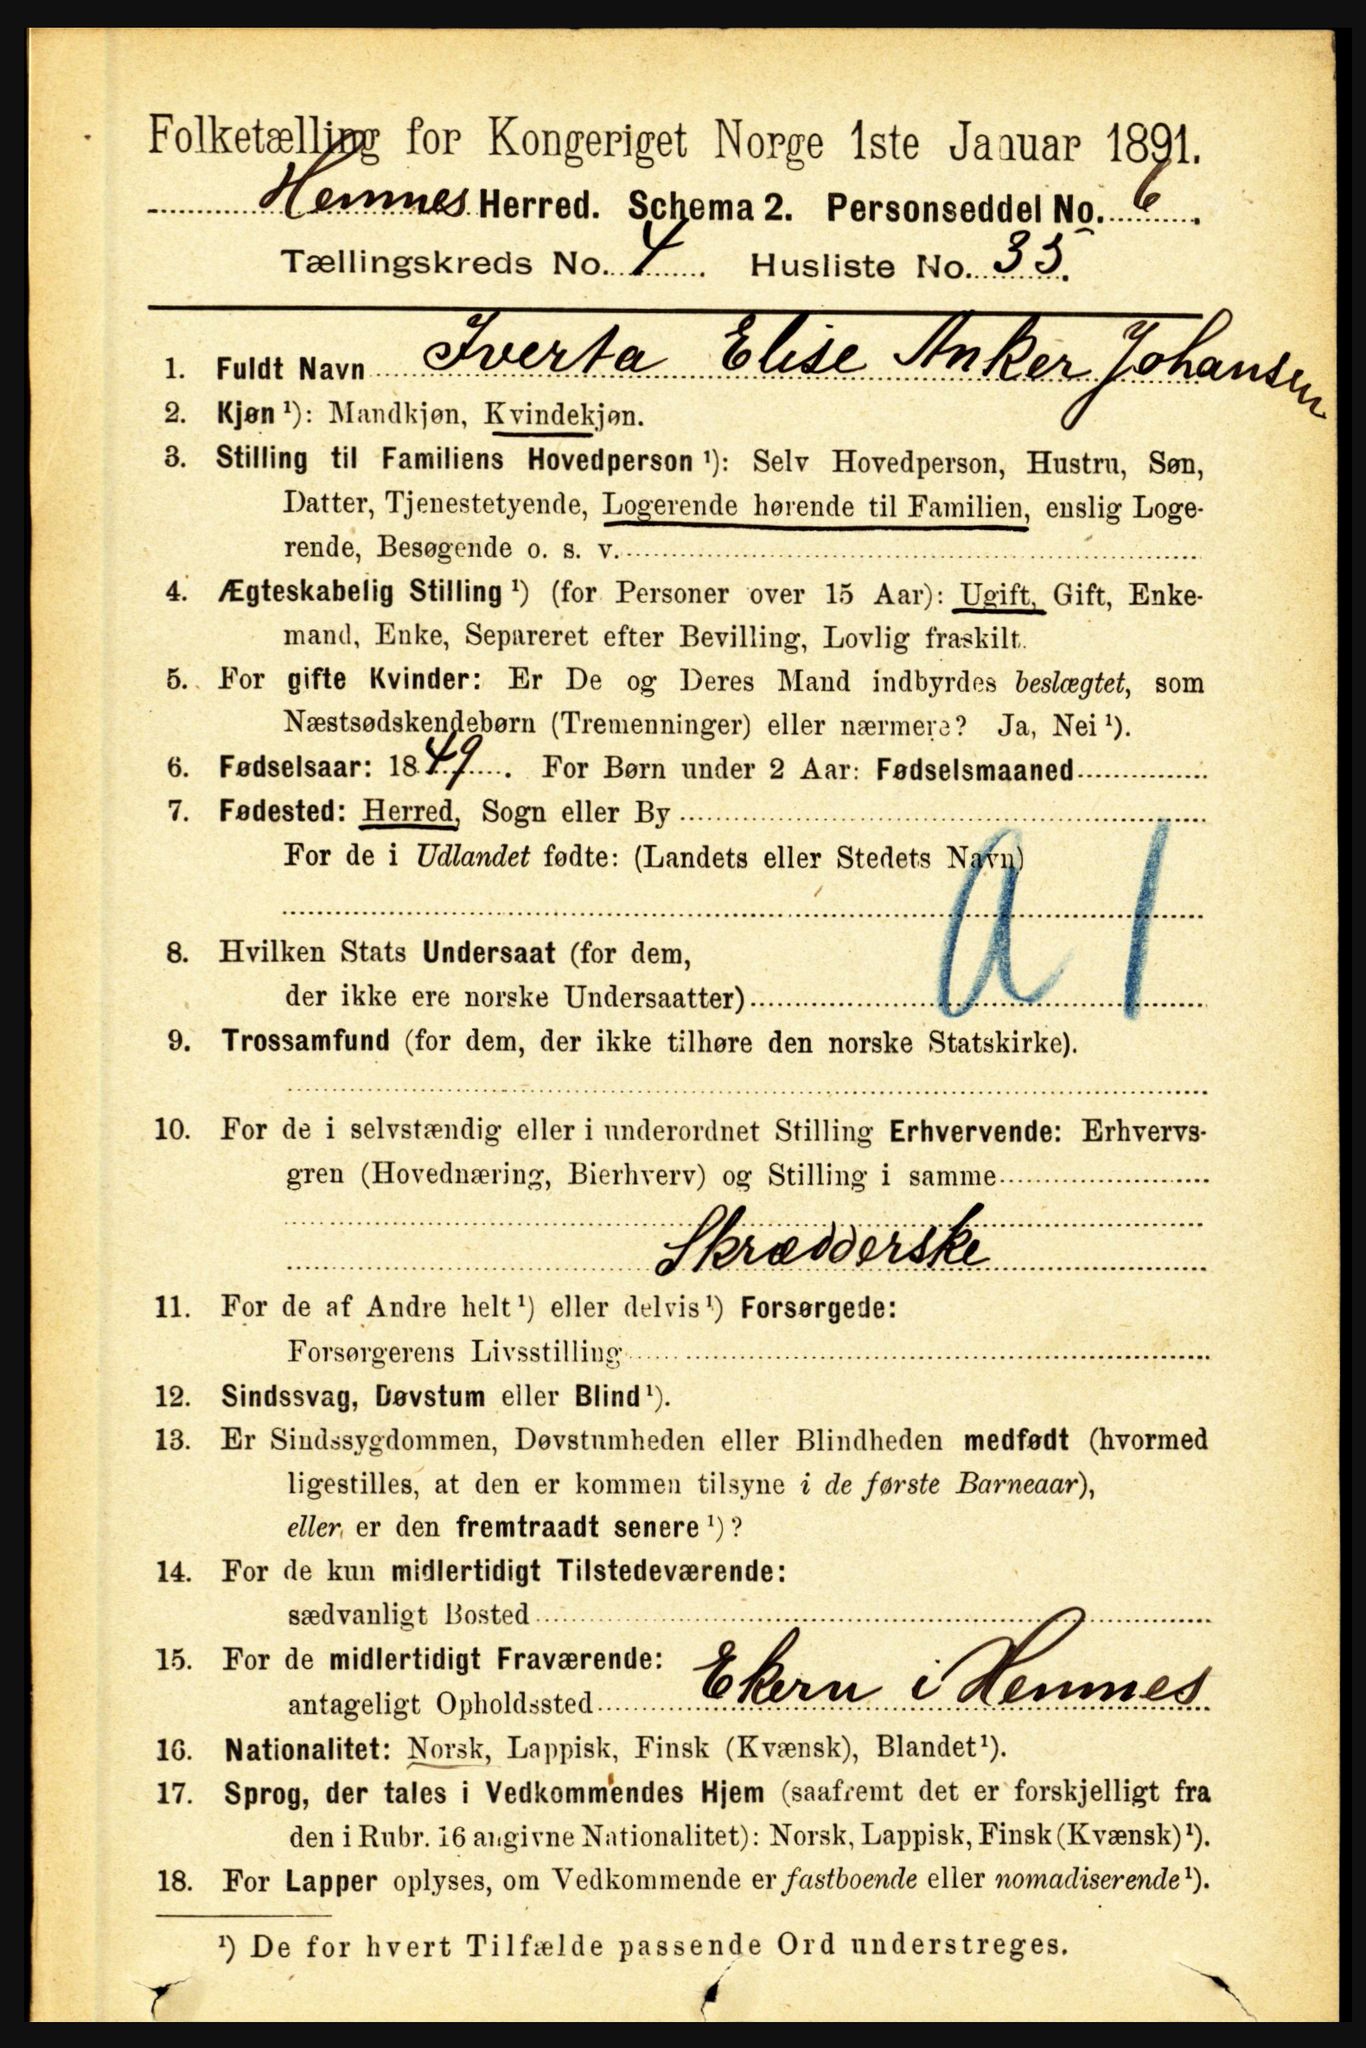 Folketælling for Kongeriget Norge 1ste Januar 1891.
Hemnes Herred. Schema 2. Personseddel No. 6.
Tællingskreds No. 4. Husliste No. 35.
1. Fuldt Navn Iverta Elise Anker Johansen
2. Kjøn ¹): Mandkjøn, Kvindekjøn.
3. Stilling til Familiens Hovedperson ¹): Selv Hovedperson, Hustru, Søn,
Datter, Tjenestetyende, Logerende hørende til Familien, enslig Loge-
rende, Besøgende o. s. v.
4. Ægteskabelig Stilling ¹) (for Personer over 15 Aar): Ugift, Gift, Enke-
mand, Enke, Separeret efter Bevilling, Lovlig fraskilt.
5. For gifte Kvinder: Er De og Deres Mand indbyrdes beslægtet, som
Næstsødskendebørn (Tremenninger) eller nærmere? Ja, Nei ¹).
6. Fødselsaar: 1849. For Børn under 2 Aar: Fødselsmaaned
7. Fødested: Herred, Sogn eller By
For de i Udlandet fødte: (Landets eller Stedets Navn)
a 1
8. Hvilken Stats Undersaat (for dem,
der ikke ere norske Undersaatter)
9. Trossamfund (for dem, der ikke tilhøre den norske Statskirke).
10. For de i selvstændig eller i underordnet Stilling Erhvervende: Erhvervs-
gren (Hovednæring, Bierhverv) og Stilling i samme
Skrædderske
11. For de af Andre helt ¹) eller delvis ¹) Forsørgede:
Forsørgerens Livsstilling
12. Sindssvag, Døvstum eller Blind ¹).
13. Er Sindssygdommen, Døvstumheden eller Blindheden medfødt (hvormed
ligestilles, at den er kommen tilsyne i de første Barneaar),
eller er den fremtraadt senere ¹)?
14. For de kun midlertidigt Tilstedeværende:
sædvanligt Bosted
15. For de midlertidigt Fraværende:
antageligt Opholdssted Ekern i Hemnes
16. Nationalitet: Norsk, Lappisk, Finsk (Kvænsk), Blandet ¹).
17. Sprog, der tales i Vedkommendes Hjem (saafremt det er forskjelligt fra
den i Rubr. 16 angivne Nationalitet): Norsk, Lappisk, Finsk (Kvænsk) ¹).
18. For Lapper oplyses, om Vedkommende er fastboende eller nomadiserende ¹).
¹) De for hvert Tilfælde passende Ord understreges.